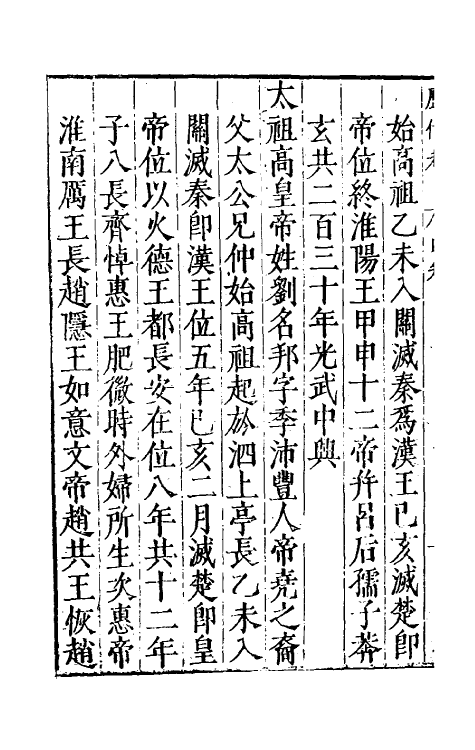 始高祖乙未入關滅秦爲漢王已亥滅楚卽
帝位終淮陽王甲申十二帝幷呂后孺子莽
玄共二百三十年光武中興
太祖高皇帝姓劉名邦字季沛豐人帝堯之裔
父太公兄仲始高祖起於泗上亭長乙未入
關滅秦卽漢王位五年已亥二月滅楚卽皇
帝位以火德王都長安在位八年共十二年
子八長齊悼惠王肥微時外婦所生次惠帝
淮南厲王長趙隱王如意文帝趙共王恢趙